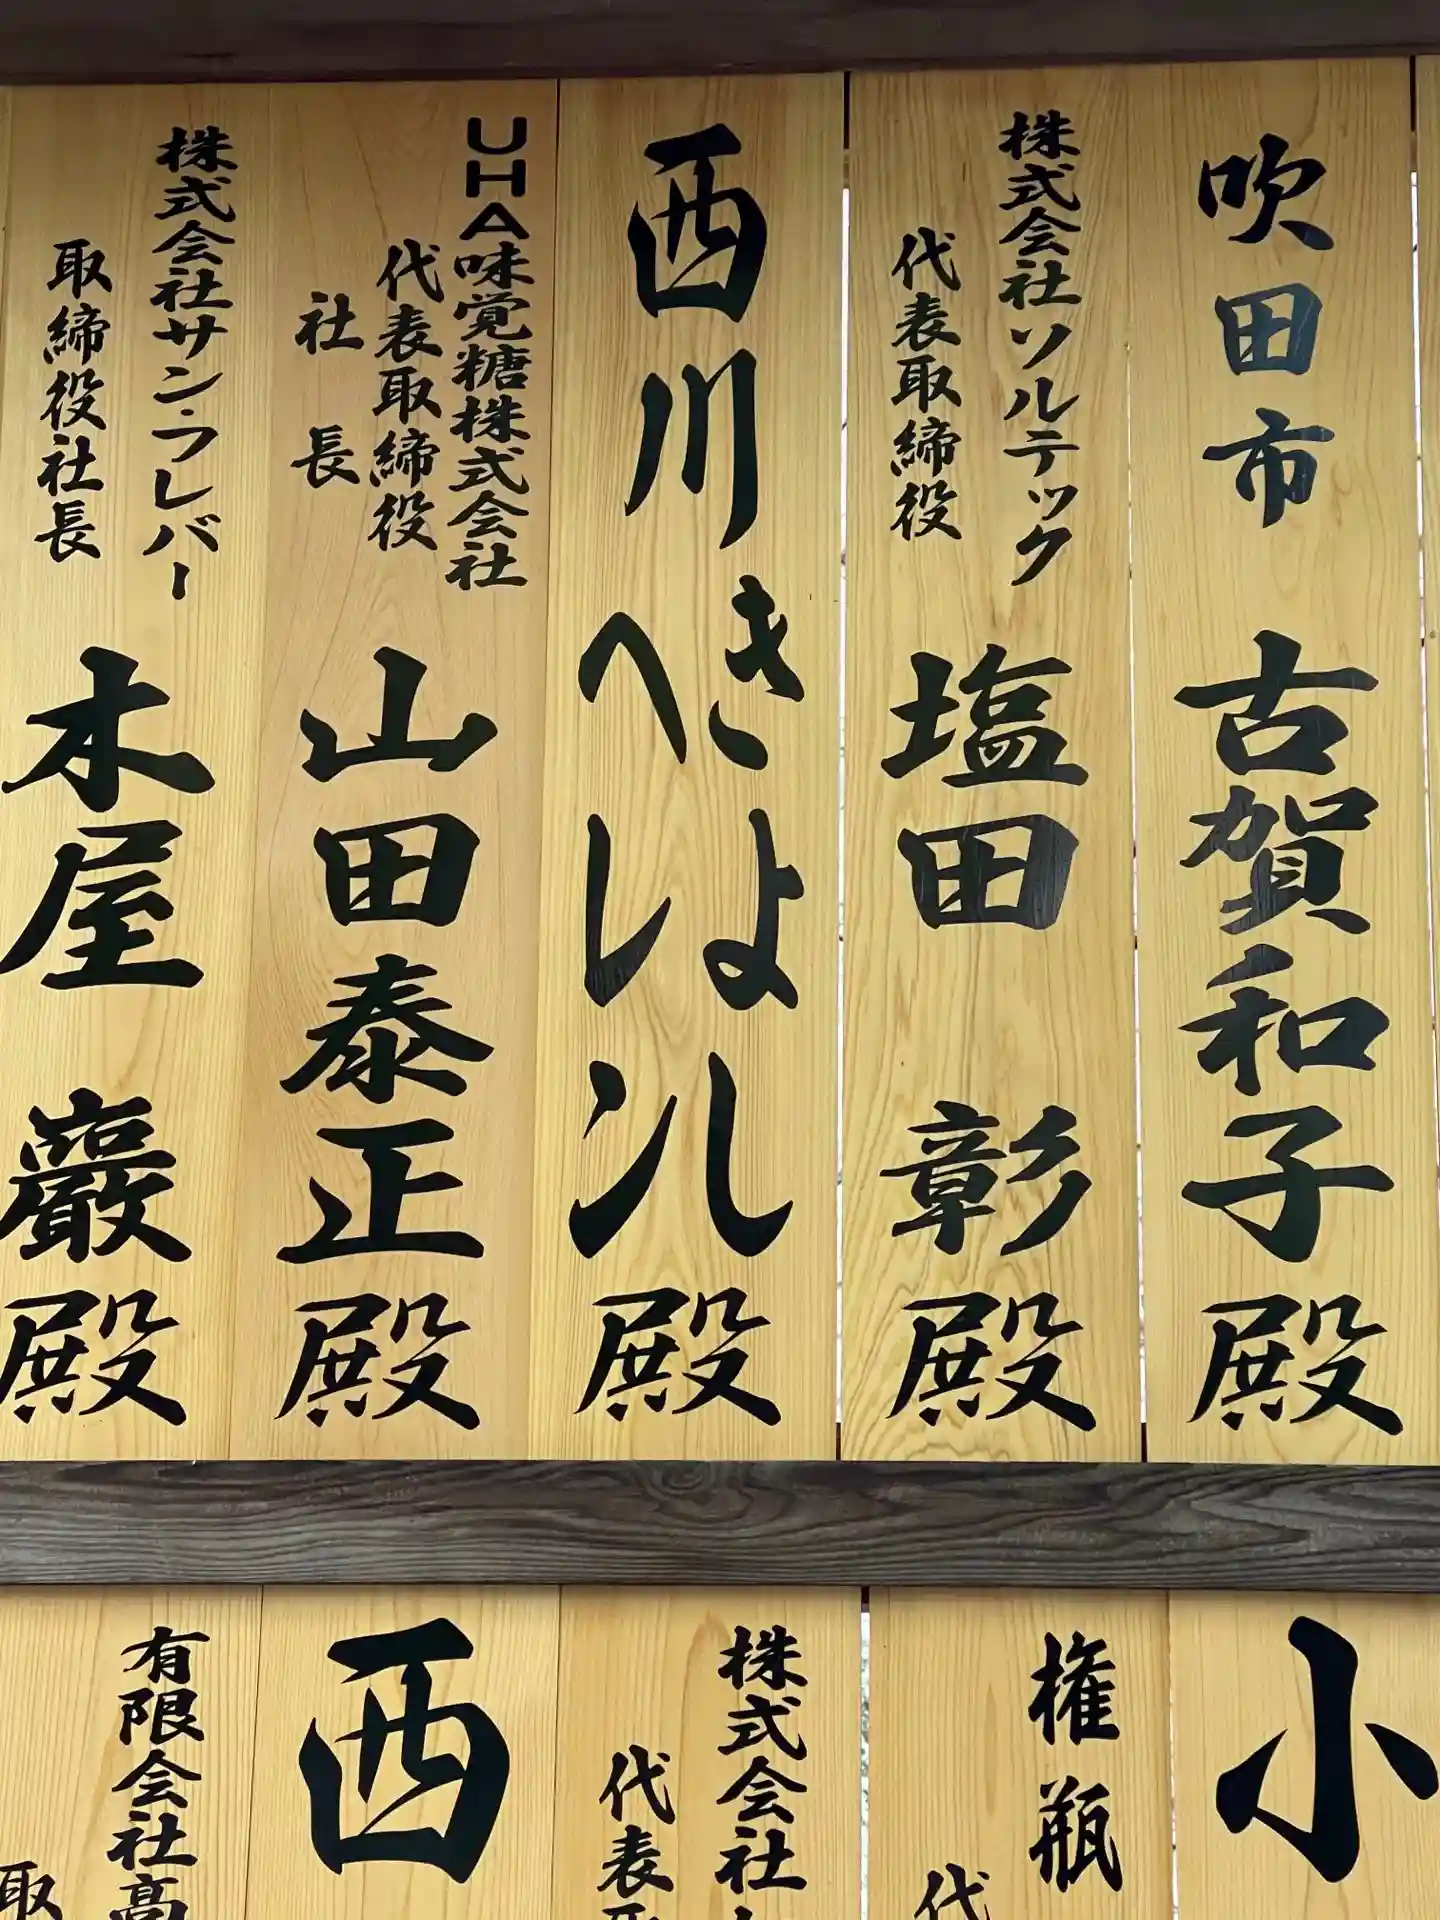 吹田市
古賀和子殿
株式会社ソルテック
代表取締役
塩田 彰殿
西川きよし
ヘレン殿
UHA味覚糖株式会社
代表取締役
社長
山田泰正殿
株式会社サン・フレバー
取締役社長
木屋 巖殿
小
権瓶
代
株式会社
代表取
西
有限会社高
取